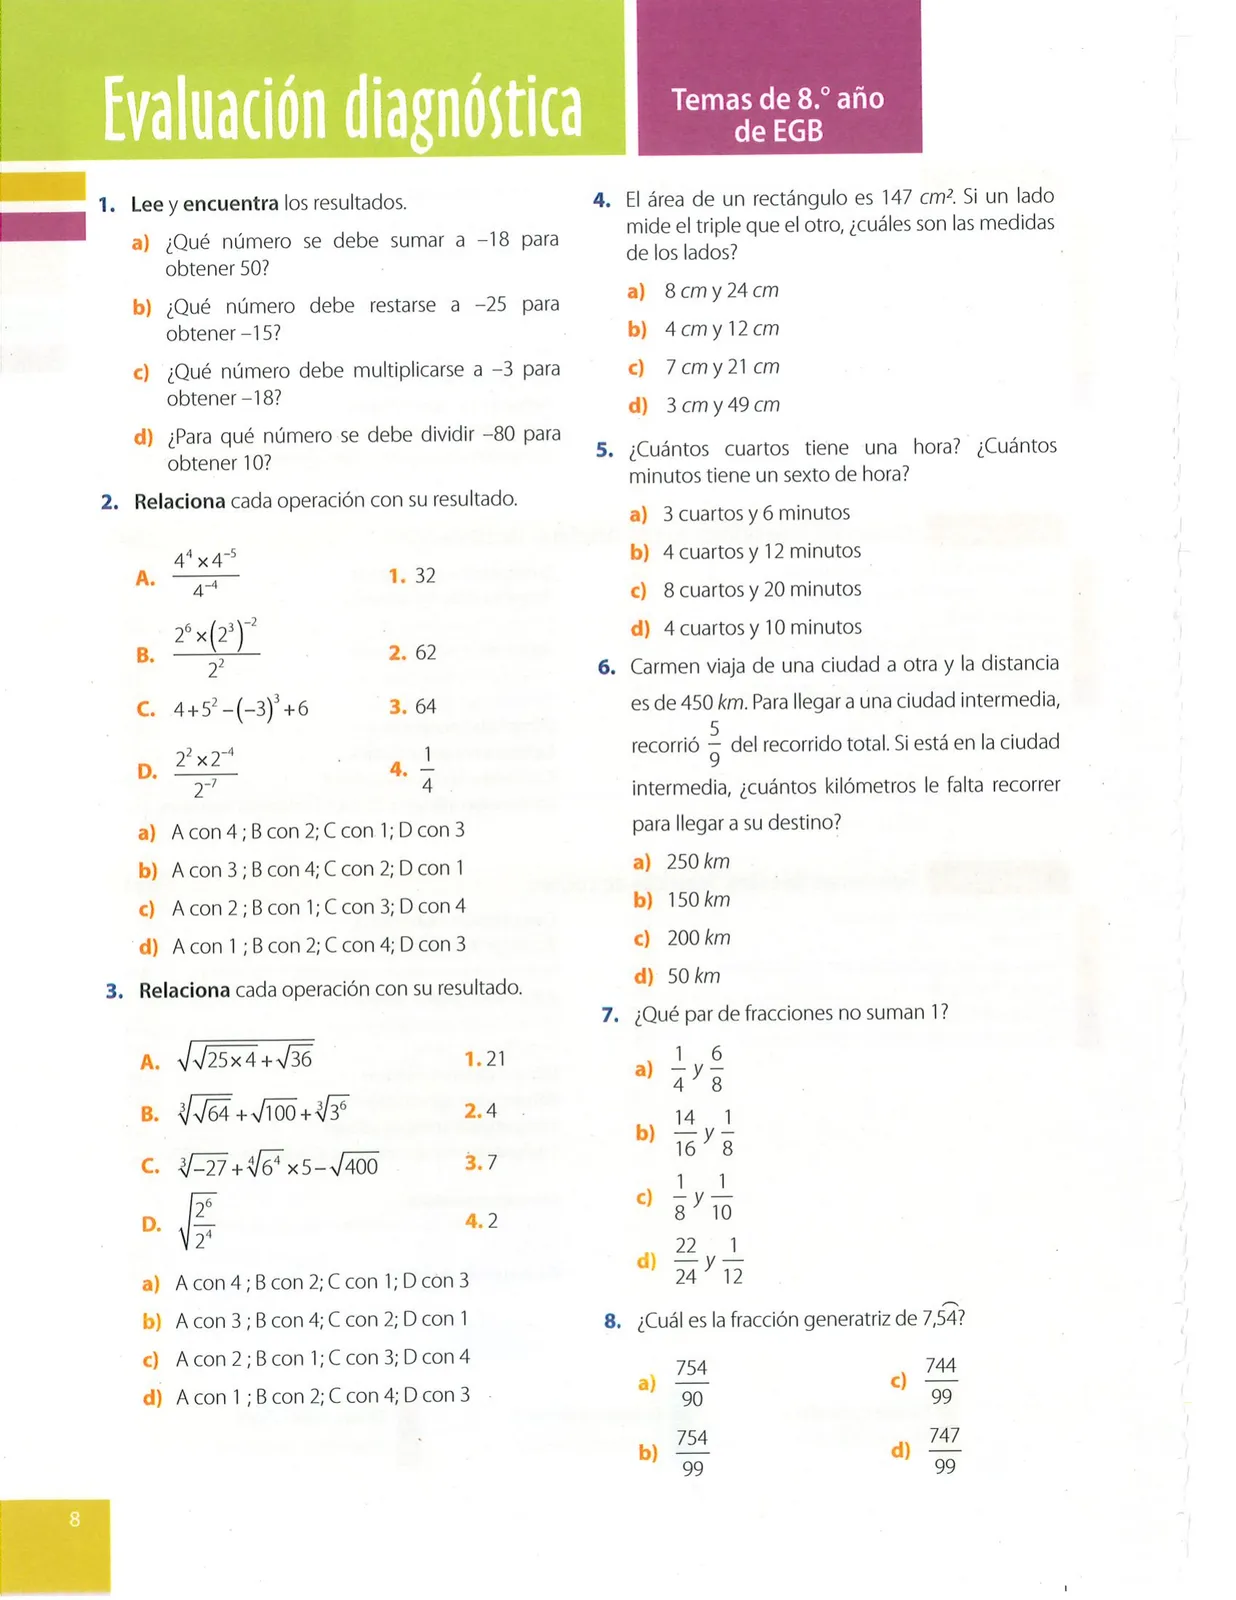 Evaluación diagnóstica
Temas de 8.° año
de EGB
1. Lee y encuentra los resultados.
a) ¿Qué número se debe sumar a –18 para
obtener 50?
b) ¿Qué número debe restarse a –25 para
obtener –15?
c) ¿Qué número debe multiplicarse a –3 para
obtener –18?
d) ¿Para qué número se debe dividir –80 para
obtener 10?
2. Relaciona cada operación con su resultado.
A. (4⁴ x 4⁻⁵) / 4⁻⁴ 1. 32
B. (2⁶ x (2³)⁻²) / 2² 2. 62
C. 4+5²–(–3)³+6 3. 64
D. (2² x 2⁻⁴) / 2⁻⁷ 4. 1/4
a) A con 4 ; B con 2; C con 1; D con 3
b) A con 3 ; B con 4; C con 2; D con 1
c) A con 2 ; B con 1; C con 3; D con 4
d) A con 1 ; B con 2; C con 4; D con 3
3. Relaciona cada operación con su resultado.
A. √(√(25 x 4) + √36) 1. 21
B. ∛√64 + √100 + ∛3⁶ 2. 4
C. ∛–27 + ∜6⁴ x 5 – √400 3. 7
D. √(2⁶/2⁴) 4. 2
a) A con 4 ; B con 2; C con 1; D con 3
b) A con 3 ; B con 4; C con 2; D con 1
c) A con 2 ; B con 1; C con 3; D con 4
d) A con 1 ; B con 2; C con 4; D con 3
4. El área de un rectángulo es 147 cm². Si un lado
mide el triple que el otro, ¿cuáles son las medidas
de los lados?
a) 8 cm y 24 cm
b) 4 cm y 12 cm
c) 7 cm y 21 cm
d) 3 cm y 49 cm
5. ¿Cuántos cuartos tiene una hora? ¿Cuántos
minutos tiene un sexto de hora?
a) 3 cuartos y 6 minutos
b) 4 cuartos y 12 minutos
c) 8 cuartos y 20 minutos
d) 4 cuartos y 10 minutos
6. Carmen viaja de una ciudad a otra y la distancia
es de 450 km. Para llegar a una ciudad intermedia,
recorrió 5/9 del recorrido total. Si está en la ciudad
intermedia, ¿cuántos kilómetros le falta recorrer
para llegar a su destino?
a) 250 km
b) 150 km
c) 200 km
d) 50 km
7. ¿Qué par de fracciones no suman 1?
a) 1/4 y 6/8
b) 14/16 y 1/8
c) 1/8 y 1/10
d) 22/24 y 1/12
8. ¿Cuál es la fracción generatriz de 7,5͡4?
a) 754/90 c) 744/99
b) 754/99 d) 747/99
8